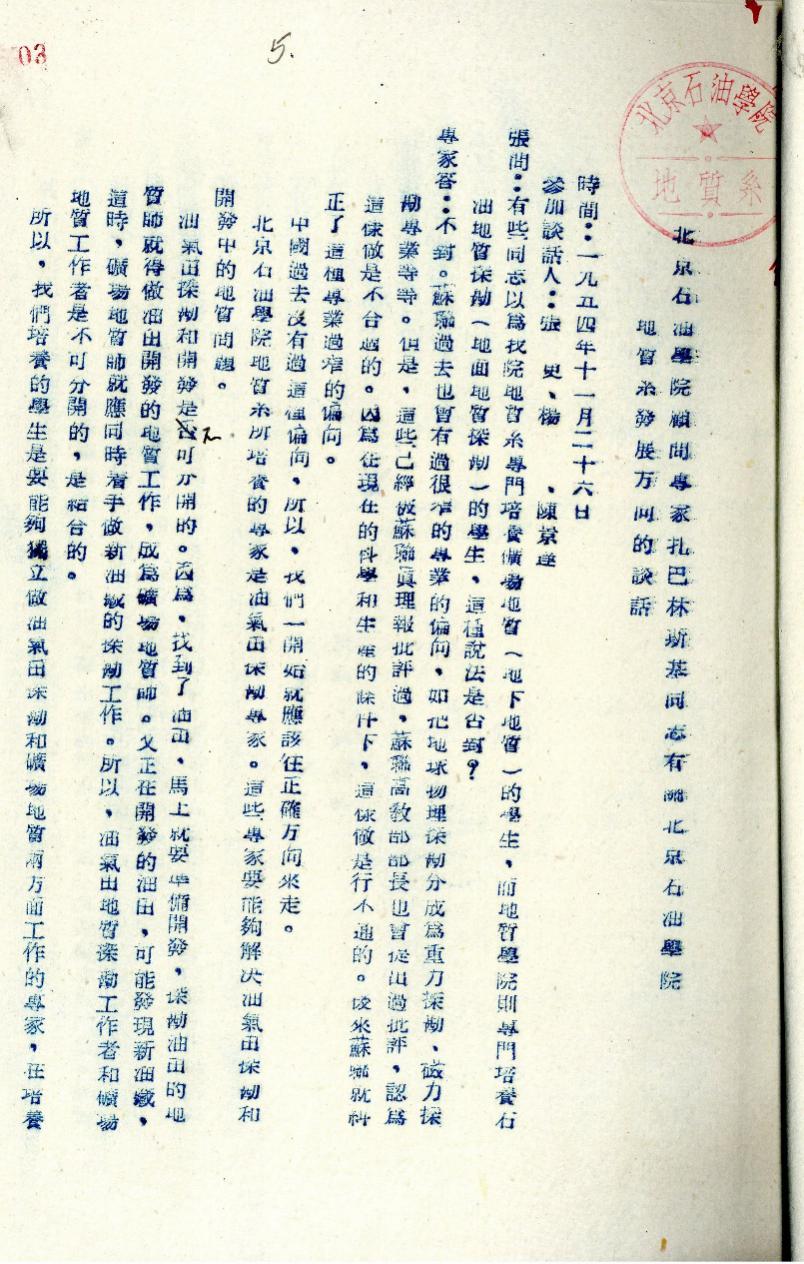 03
5.
北京石油學院
地質系
北京石油學院顧問專家扎巴林斯基同志有關北京石油學院
地質系發展方向的談話
時間：一九五四年十一月二十六日
參加談話人：張 更、楊 、陳景達
張問：有些同志以爲我院地質系專門培養礦場地質（地下地質）的學生，而地質學院則專門培養石
油地質探勘（地面地質探勘）的學生，這種說法是否對？
專家答：不對。蘇聯過去也曾有過很窄的專業的偏向，如把地球物理探勘分成爲重力探勘、磁力探
勘專業等等。但是，這些已經被蘇聯眞理報批評過，蘇聯高教部部長也曾提出過批評，認爲
這樣做是不合適的。因爲在現在的科學和生產的條件下，這樣做是行不通的。後來蘇聯就糾
正了這種專業過窄的偏向。
中國過去沒有過這種偏向，所以，我們一開始就應該往正確方向來走。
北京石油學院地質系所培養的專家是油氣田探勘專家。這些專家要能夠解決油氣田探勘和
開發中的地質問題。
油氣田探勘和開發是不可分開的。因爲，找到了油田，馬上就要準備開發，探勘油田的地
質師就得做油田開發的地質工作，成爲礦場地質師。又正在開發的油田，可能發現新油藏，
這時，礦場地質師就應同時着手做新油藏的探勘工作。所以，油氣田地質探勘工作者和礦場
地質工作者是不可分開的，是結合的。
所以，我們培養的學生是要能夠獨立做油氣田探勘和礦場地質兩方面工作的專家，在培養